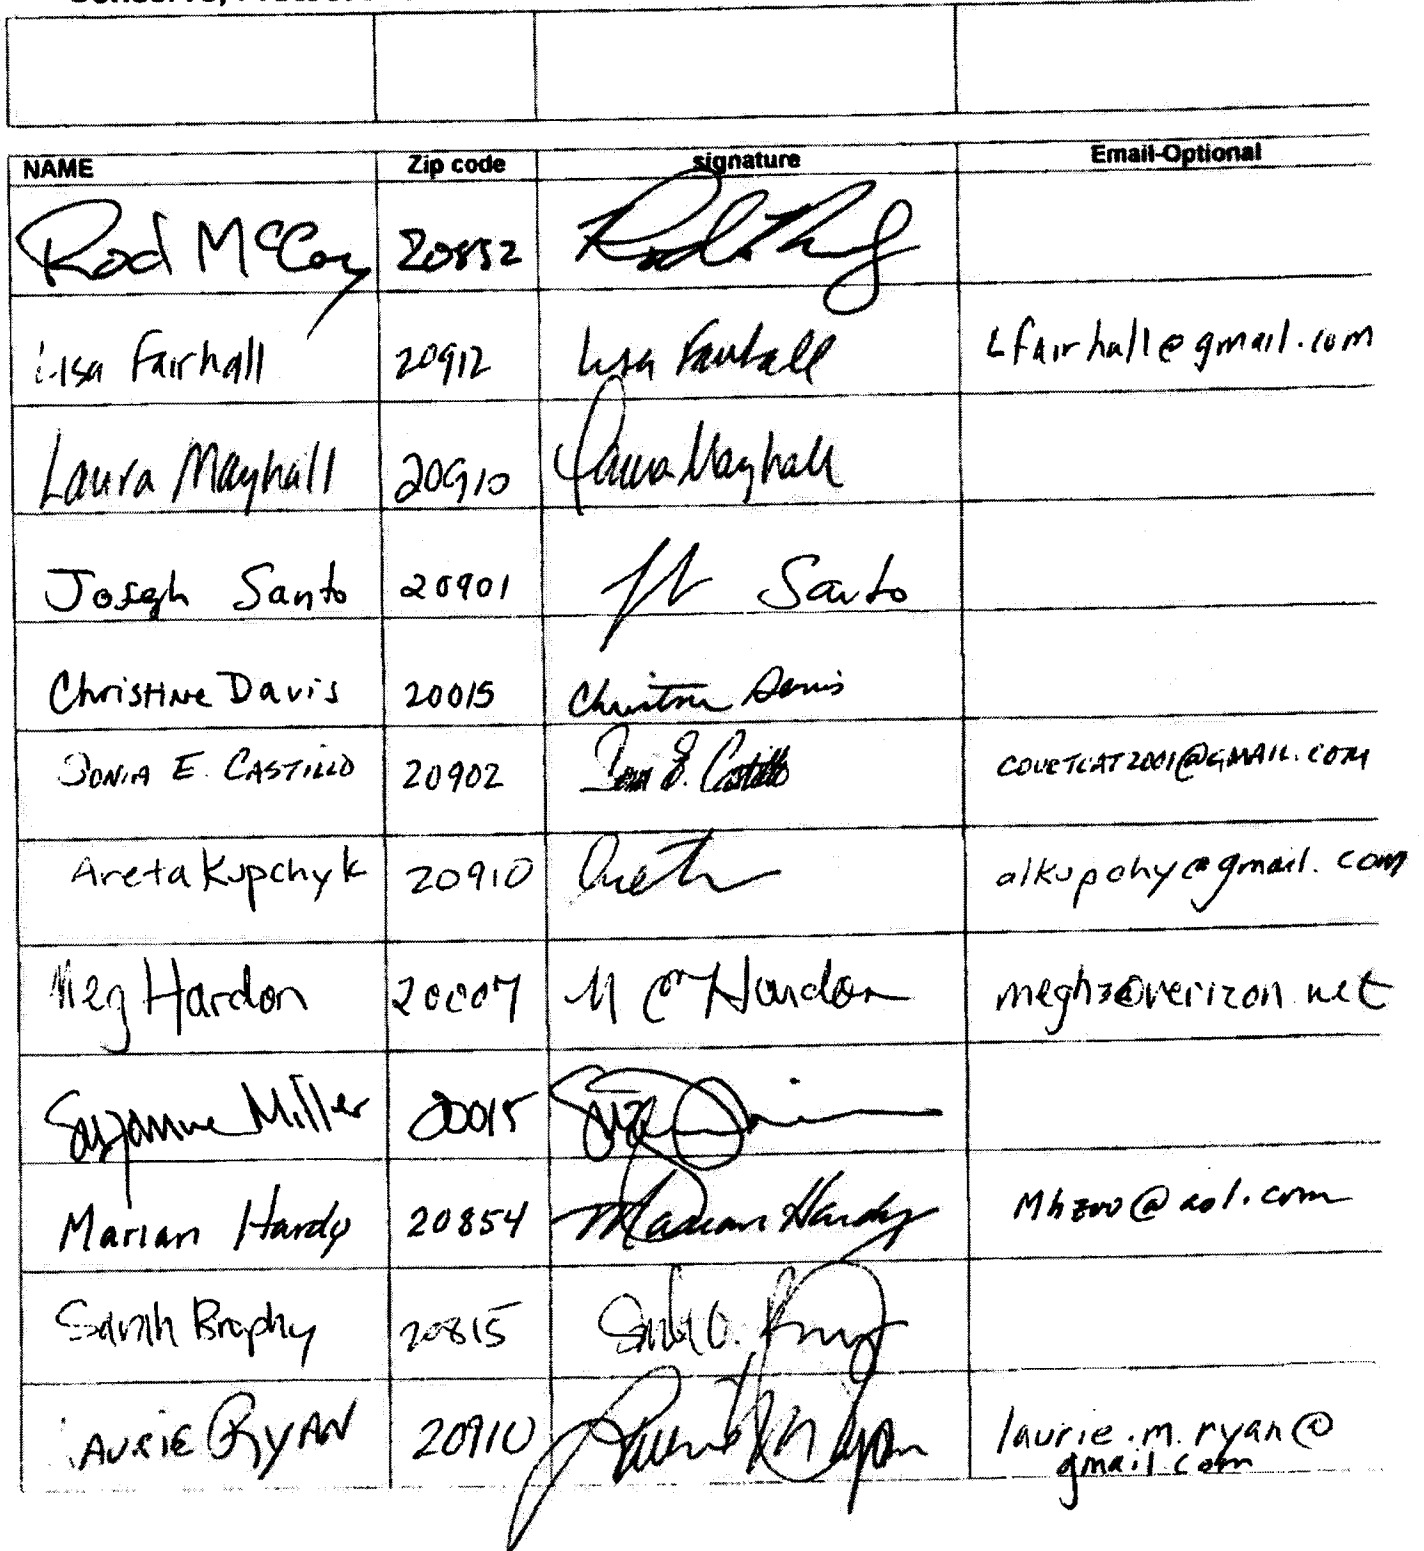 NAME Zip code signature Email-Optional
Rod McCoy 20852
Lisa Fairhall 20912 Lisa Fairhall Lfairhall@gmail.com
Laura Mayhall 20910 Laura Mayhall
Joseph Santo 20901 Santo
Christine Davis 20015 Christine Davis
SONIA E. CASTILLO 20902 Sonia E. Castillo COVETCAT2001@GMAIL.COM
Areta Kupchyk 20910 alkupchy@gmail.com
Meg Hardon 20007 Hardon megh3@verizon.net
Suzanne Miller 20015
Marian Hardy 20854 Marian Hardy Mhzoo@aol.com
Sarah Brophy 20815
LAURIE RYAN 20910 Laurie M Ryan laurie.m.ryan@
gmail.com